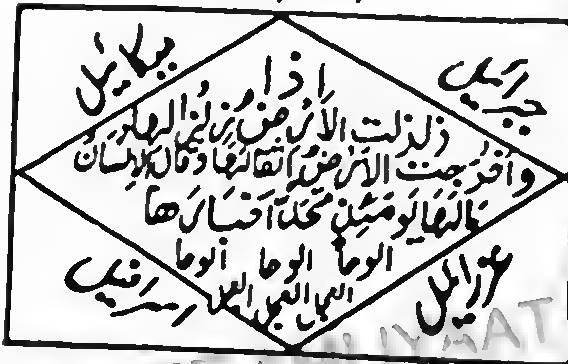 جبرائیل
میکائیل
اذا
زلزلت الأرض زلزالها
و اخرجت الأرض اثقالها وقال الإنسان
مالها یومئذ تحدّث اخبارها
الوحا الوحا الوحا
العجل العجل العجل
عزرائیل
اسرافیل